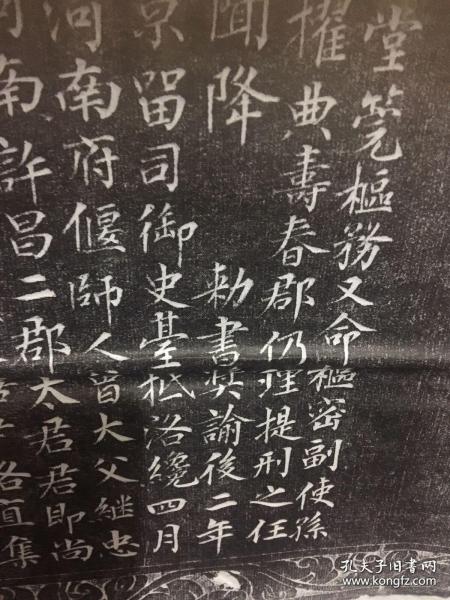 堂筦樞務又命樞密副使孫
擢典壽春郡仍理提刑之任
聞降 勅書奬諭後二年
京留司御史臺抵洛纔四月
河南府偃師人曾大父継忠
南許昌二郡太君君即尚
直集
孔夫子旧书网
www.kongfz.com